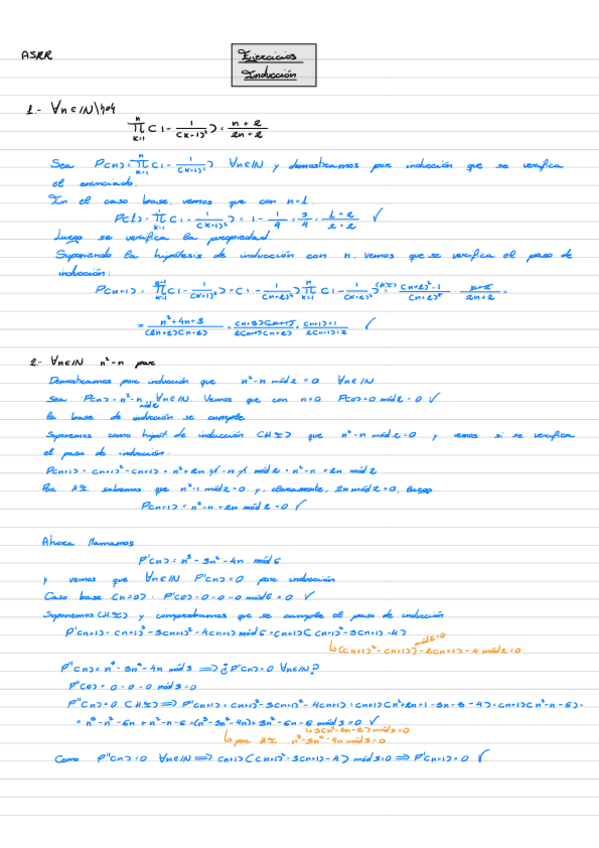 ASRR
Ejercicios
Inducción
1.- ∀n∈ℕ\{0}
∏_{k=1}^{n} (1 - 1/(k+1)²) = (n+2)/(2n+2)
Sea P(n) = ∏_{k=1}^{n} (1 - 1/(k+1)²) ∀n∈ℕ y demostramos por inducción que se verifica
el enunciado.
En el caso base, vemos que con n=1
P(1) = ∏_{k=1} (1 - 1/(k+1)²) = 1 - 1/4 = 3/4 = (1+2)/(2+2) ✓
Luego se verifica la propiedad.
Suponiendo la hipótesis de inducción con n, vemos que se verifica el paso de
inducción:
P(n+1) = ∏_{k=1}^{n+1} (1 - 1/(k+1)²) = (1 - 1/(n+2)²) ∏_{k=1}^{n} (1 - 1/(k+2)²) =^{(H.I)} ((n+2)²-1)/(n+2)² · (n+2)/(2n+2) =
= (n²+4n+3)/((2n+2)(n+2)) = (n+3)(n+1)/(2(n+1)(n+2)) = ((n+1)+2)/(2(n+1)+2) ✓
2.- ∀n∈ℕ n²-n par
Demostramos por inducción que n²-n mód 2 = 0 ∀n∈ℕ
Sea P(n) = n²-n mód 2 ∀n∈ℕ. Vemos que con n=0 P(0)=0 mód 2 = 0 ✓
la base de inducción se cumple
Suponemos como hipót de inducción (H.I) que n²-n mód 2 = 0 y vemos si se verifica
el paso de inducción:
P(n+1) = (n+1)²-(n+1) = n²+2n+1-n-1 mód 2 = n²-n+2n mód 2
Por H.I. sabemos que n²-1 mód 2 = 0 y, claramente, 2n mód 2 = 0, luego
P(n+1) = n²-n+2n mód 2 = 0 ✓
Ahora llamamos
P'(n) = n³-3n²-4n mód 6
y vemos que ∀n∈ℕ P'(n)=0 por inducción
Caso base (n=0): P'(0)=0-0-0 mód 6 = 0 ✓
Suponemos (H.I) y comprobamos que se cumple el paso de inducción
P'(n+1) = (n+1)³-3(n+1)²-4(n+1) mód 6 = (n+1)((n+1)²-3(n+1)-4)
mód 2=0
↳((n+1)²-(n+1))-2(n+1)-4 mód 2=0
P''(n) = n³-3n²-4n mód 3 ⟹ ¿P''(n)=0 ∀n∈ℕ?
P''(0) = 0-0-0 mód 3 = 0
P''(n)=0 (H.I) ⟹ P''(n+1) = (n+1)³-3(n+1)²-4(n+1) = (n+1)(n²+2n+1-3n-3-4) = (n+1)(n²-n-6) =
= n³-n²-6n+n²-n-6 = (n³-3n²-4n)+3n²-6n-6 mód 3 = 0 ✓
↳3(n²-2n-2) mód 3=0
↳ por H.I. n³-3n²-4n mód 3=0
Como P''(n)=0 ∀n∈ℕ ⟹ (n+1)((n+1)²-3(n+1)-4) mód 3=0 ⟹ P'(n+1)=0 ✓